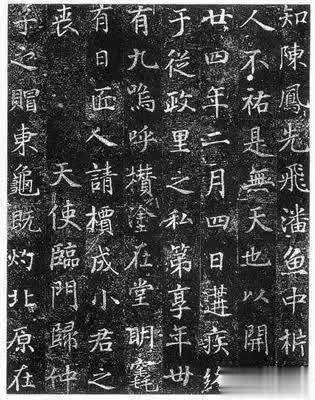 知陳鳳先飛潘魚中析
人不祐是無天也以開
廿四年二月四日遘疾終
于從政里之私第享年卌
有九嗚呼攢塗在堂明竁
有日匠人請櫝成小君之
喪 天使臨門歸仲
子之賵東龜既灼北原在